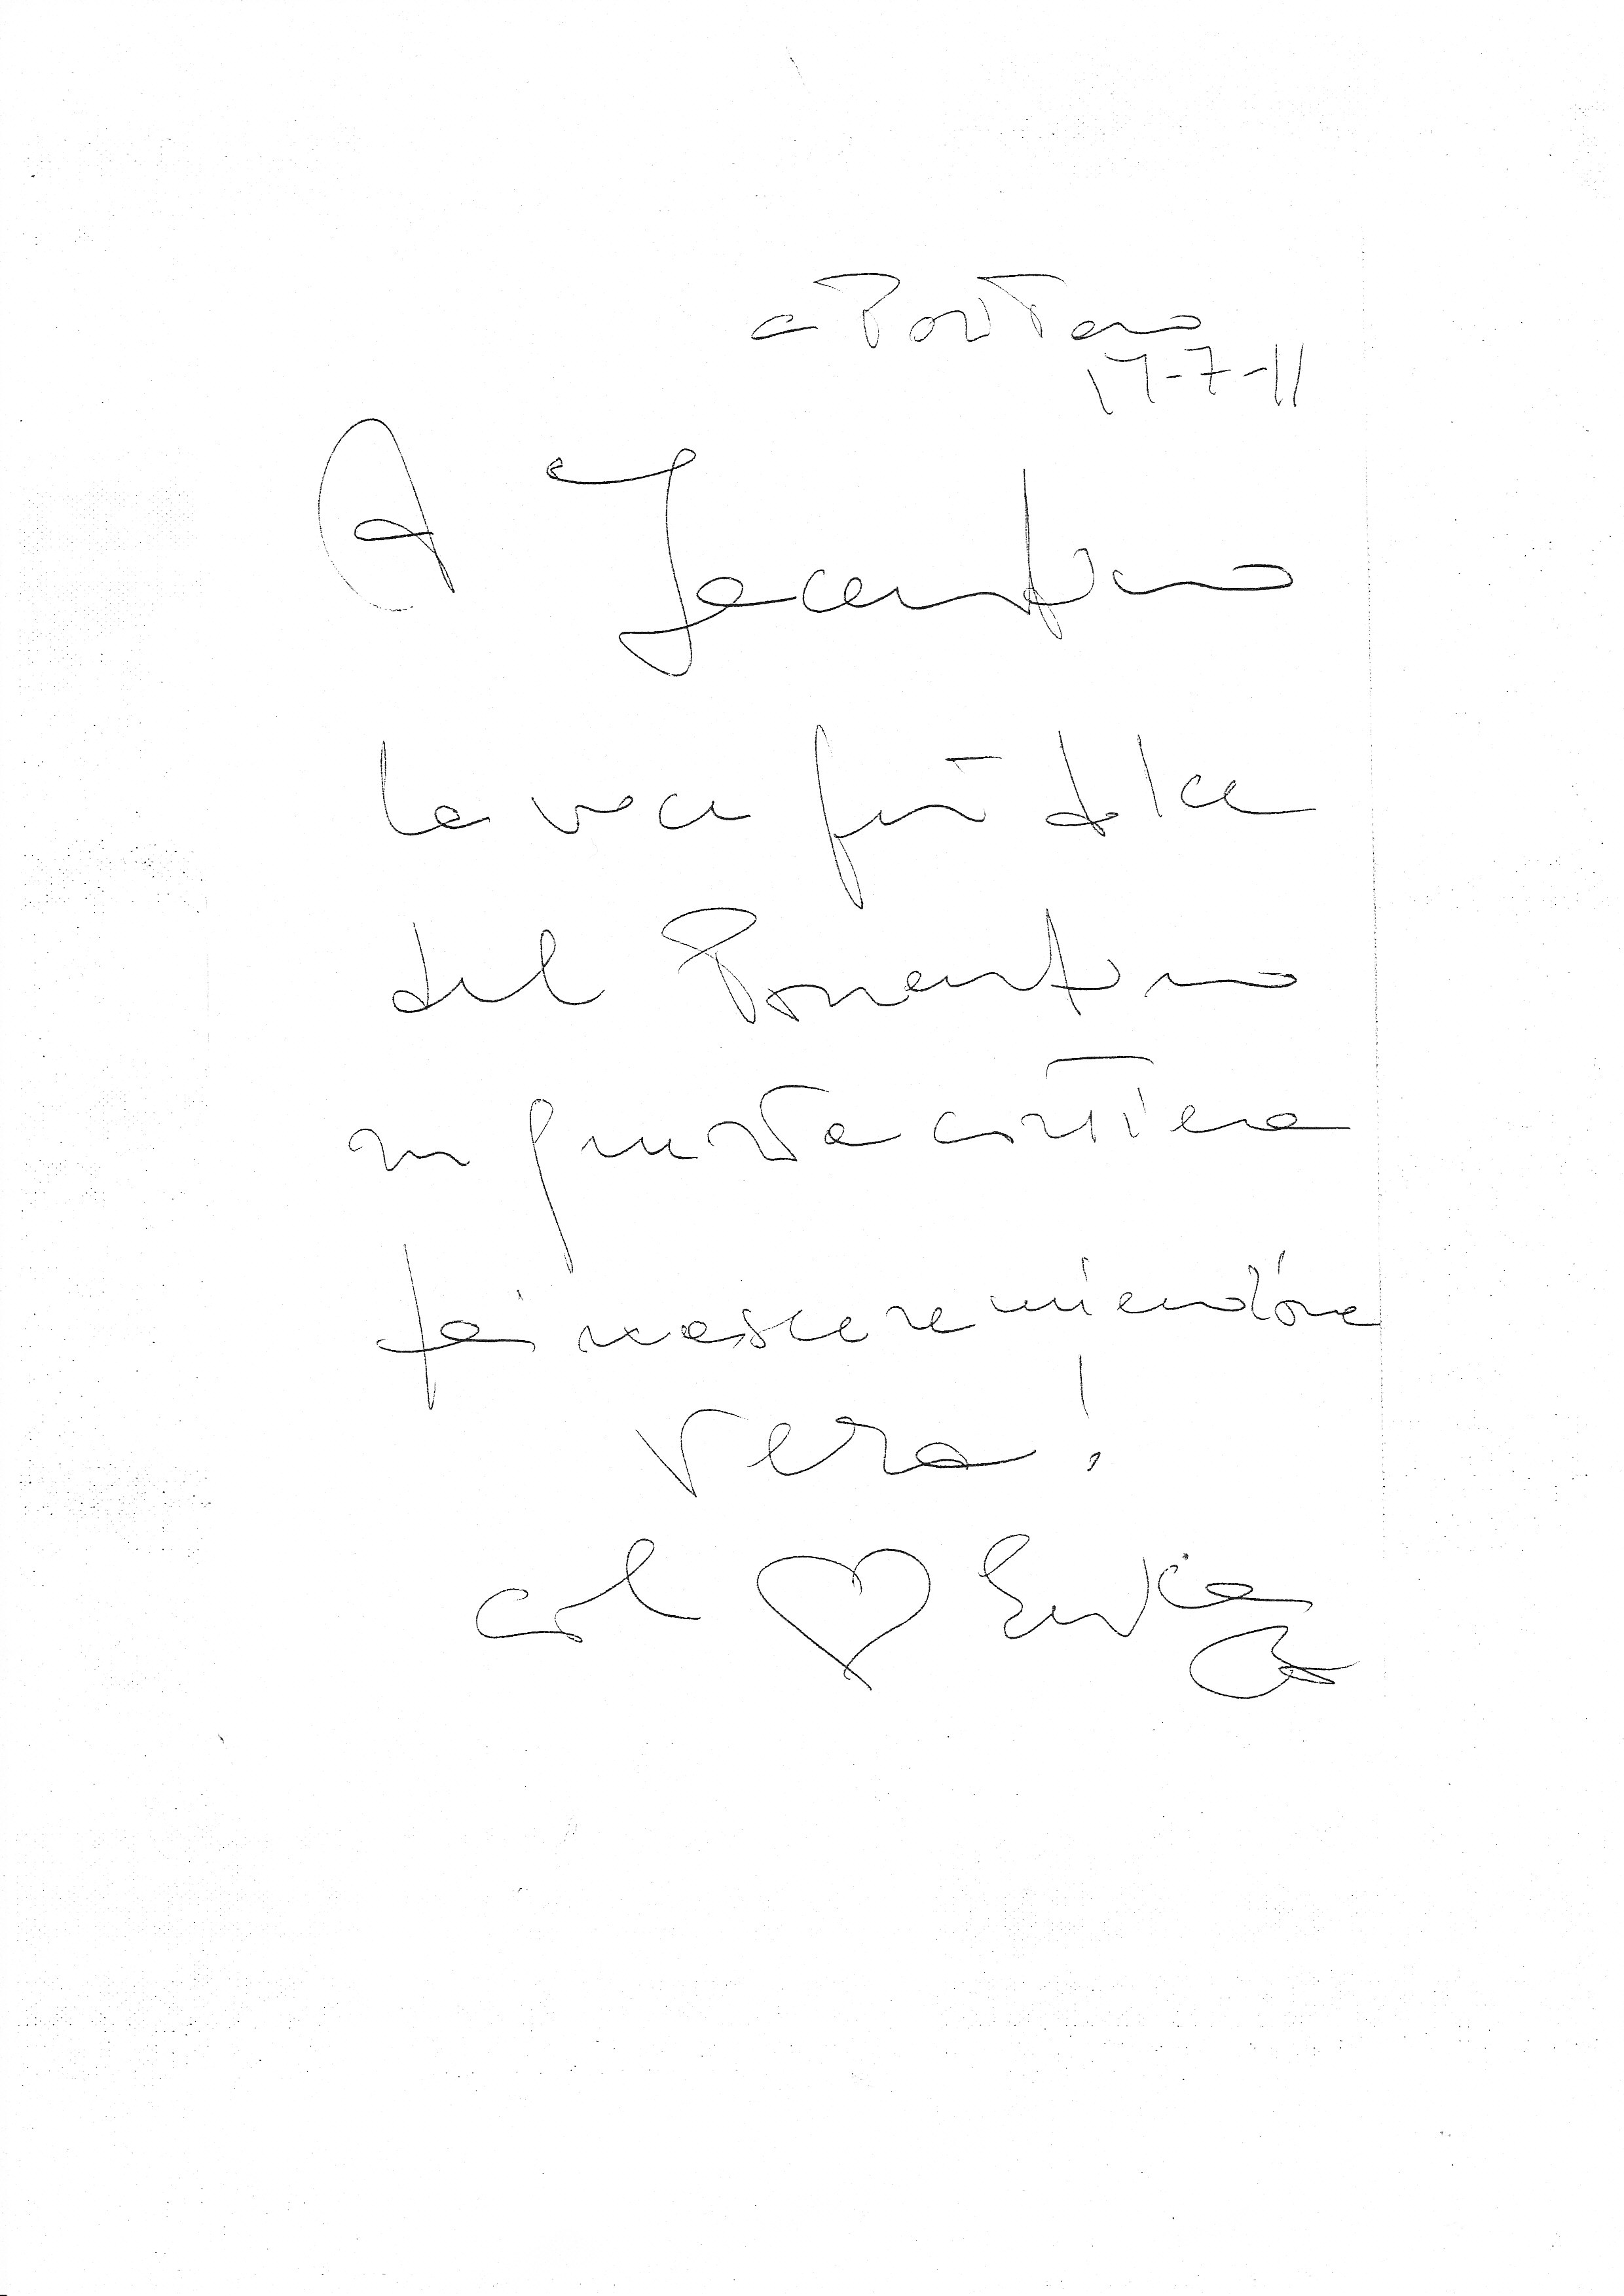 a Positano
17-7-11
A Jacentino
la voce più dolce
del Ponentino
in questa costiera
fai nascere
Vera!
col ♡ Enrica